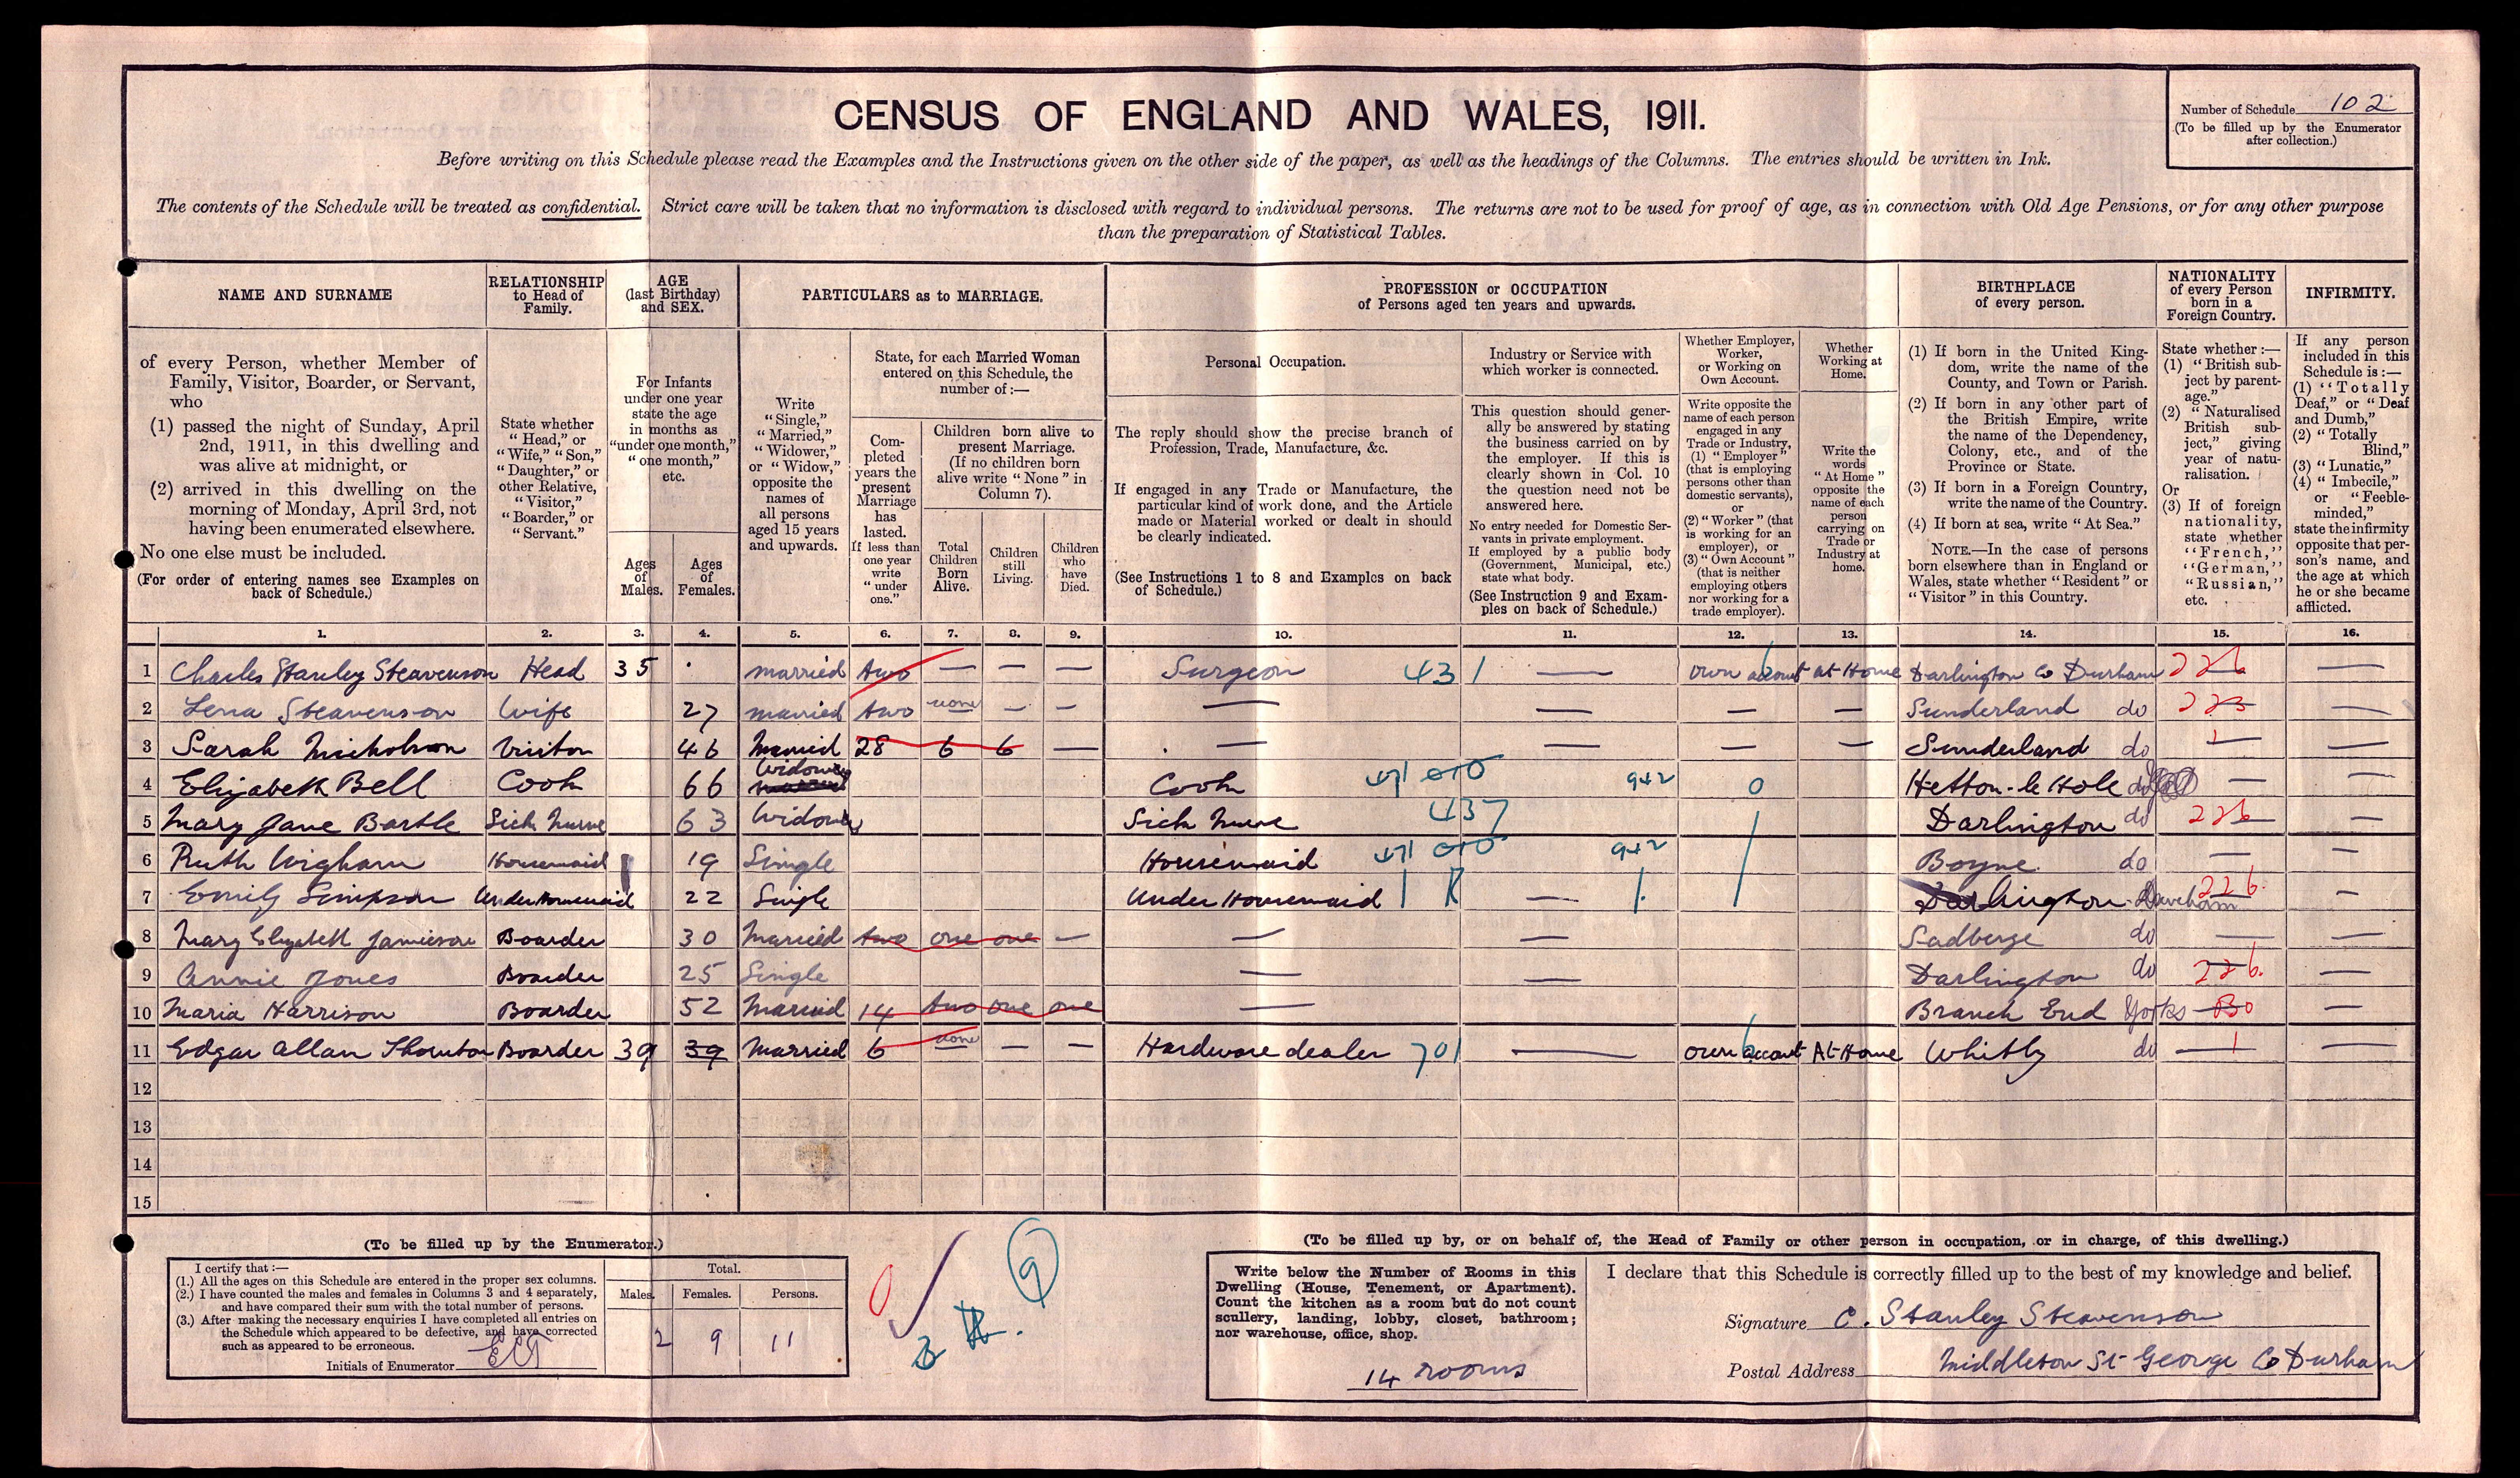 CENSUS OF ENGLAND AND WALES, 1911.
Number of Schedule 102
(To be filled up by the Enumerator
after collection.)
Before writing on this Schedule please read the Examples and the Instructions given on the other side of the paper, as well as the headings of the Columns. The entries should be written in Ink.
The contents of the Schedule will be treated as confidential. Strict care will be taken that no information is disclosed with regard to individual persons. The returns are not to be used for proof of age, as in connection with Old Age Pensions, or for any other purpose
than the preparation of Statistical Tables.
NAME AND SURNAME
RELATIONSHIP
to Head of
Family.
AGE
(last Birthday)
and SEX.
PARTICULARS as to MARRIAGE.
PROFESSION or OCCUPATION
of Persons aged ten years and upwards.
BIRTHPLACE
of every person.
NATIONALITY
of every Person
born in a
Foreign Country.
INFIRMITY.
of every Person, whether Member of
Family, Visitor, Boarder, or Servant,
who
(1) passed the night of Sunday, April
2nd, 1911, in this dwelling and
was alive at midnight, or
(2) arrived in this dwelling on the
morning of Monday, April 3rd, not
having been enumerated elsewhere.
No one else must be included.
(For order of entering names see Examples on
back of Schedule.)
State whether
"Head," or
"Wife," "Son,"
"Daughter," or
other Relative,
"Visitor,"
"Boarder," or
"Servant."
For Infants
under one year
state the age
in months as
"under one month,"
"one month,"
etc.
Ages
of
Males.
Ages
of
Females.
Write
"Single,"
"Married,"
"Widower,"
or "Widow,"
opposite the
names of
all persons
aged 15 years
and upwards.
State, for each Married Woman
entered on this Schedule, the
number of:—
Com-
pleted
years the
present
Marriage
has
lasted.
If less than
one year
write
"under
one."
Children born alive to
present Marriage.
(If no children born
alive write "None" in
Column 7).
Total
Children
Born
Alive.
Children
still
Living.
Children
who
have
Died.
Personal Occupation.
The reply should show the precise branch of
Profession, Trade, Manufacture, &c.
If engaged in any Trade or Manufacture, the
particular kind of work done, and the Article
made or Material worked or dealt in should
be clearly indicated.
(See Instructions 1 to 8 and Examples on back
of Schedule.)
Industry or Service with
which worker is connected.
This question should gener-
ally be answered by stating
the business carried on by
the employer. If this is
clearly shown in Col. 10
the question need not be
answered here.
No entry needed for Domestic Ser-
vants in private employment.
If employed by a public body
(Government, Municipal, etc.)
state what body.
(See Instruction 9 and Exam-
ples on back of Schedule.)
Whether Employer,
Worker,
or Working on
Own Account.
Write opposite the
name of each person
engaged in any
Trade or Industry,
(1) "Employer"
(that is employing
persons other than
domestic servants),
or
(2) "Worker" (that
is working for an
employer), or
(3) "Own Account"
(that is neither
employing others
nor working for a
trade employer).
Whether
Working at
Home.
Write the
words
"At Home"
opposite the
name of each
person
carrying on
Trade or
Industry at
home.
(1) If born in the United King-
dom, write the name of the
County, and Town or Parish.
(2) If born in any other part of
the British Empire, write
the name of the Dependency,
Colony, etc., and of the
Province or State.
(3) If born in a Foreign Country,
write the name of the Country.
(4) If born at sea, write "At Sea."
NOTE.—In the case of persons
born elsewhere than in England or
Wales, state whether "Resident" or
"Visitor" in this Country.
State whether:—
(1) "British sub-
ject by parent-
age."
(2) "Naturalised
British sub-
ject," giving
year of natu-
ralisation.
Or
(3) If of foreign
nationality,
state whether
"French,"
"German,"
"Russian,"
etc.
If any person
included in this
Schedule is:—
(1) "Totally
Deaf," or "Deaf
and Dumb,"
(2) "Totally
Blind,"
(3) "Lunatic,"
(4) "Imbecile,"
or "Feeble-
minded,"
state the infirmity
opposite that per-
son's name, and
the age at which
he or she became
afflicted.
1. 2. 3. 4. 5. 6. 7. 8. 9. 10. 11. 12. 13. 14. 15. 16.
1 Charles Stanley Steavenson Head 35 married two — — — Surgeon 431 — own account at Home Darlington Co Durham 226 —
2 Lena Steavenson Wife 27 married two none — — — — — — Sunderland do 223 —
3 Sarah Nicholson Visitor 46 Married 28 6 6 — — — — — Sunderland do 1 —
4 Elizabeth Bell Cook 66 Widow Cook 471 010 942 0 Hetton-le Hole do — —
5 Mary Jane Bartle Sick Nurse 63 Widow Sick Nurse 437 Darlington do 226 —
6 Ruth Wigham Housemaid 19 Single Housemaid 471 010 942 Boyne do — —
7 Emily Simpson Under Housemaid 22 Single Under Housemaid — Darlington Durham 226. —
8 Mary Elizabeth Jamieson Boarder 30 Married two one one — — — Sadberge do — —
9 Annie Jones Boarder 25 Single — — Darlington do 226. —
10 Maria Harrison Boarder 52 Married 14 two one one — Branch End Yorks —
11 Edgar Allan Thornton Boarder 39 39 Married 6 none — — Hardware dealer 701 — own account At Home Whitby do 1 —
12
13
14
15
(To be filled up by the Enumerator.)
I certify that:—
(1.) All the ages on this Schedule are entered in the proper sex columns.
(2.) I have counted the males and females in Columns 3 and 4 separately,
and have compared their sum with the total number of persons.
(3.) After making the necessary enquiries I have completed all entries on
the Schedule which appeared to be defective, and have corrected
such as appeared to be erroneous.
Initials of Enumerator
Total.
Males. Females. Persons.
2 9 11
9
(To be filled up by, or on behalf of, the Head of Family or other person in occupation, or in charge, of this dwelling.)
Write below the Number of Rooms in this
Dwelling (House, Tenement, or Apartment).
Count the kitchen as a room but do not count
scullery, landing, lobby, closet, bathroom;
nor warehouse, office, shop.
14 rooms
I declare that this Schedule is correctly filled up to the best of my knowledge and belief.
Signature C. Stanley Steavenson
Postal Address Middleton St George Co Durham